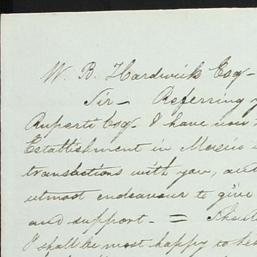 W. B. Hardwick Esq -
Sir - Referring
Ruperti Esq. I have now
Establishment in Mexico
transactions with you, and
utmost endeavour to give
and support. =
I shall be most happy to